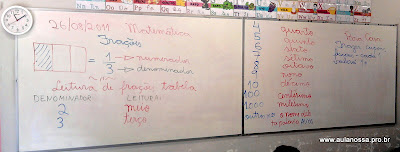 26/08/2011 Matemática
Frações
= 1 → numerador
3 → denominador
Leitura de fração tabela
DENOMINADOR LEITURA:
2 meio
3 terço
4 quarto
5 quinto
6 sexto
7 sétimo
8 oitavo
9 nono
10 décimo
100 centésimos
1000 milésimo
outros nº o nome do
Para Casa
www.aulanossa.pro.br